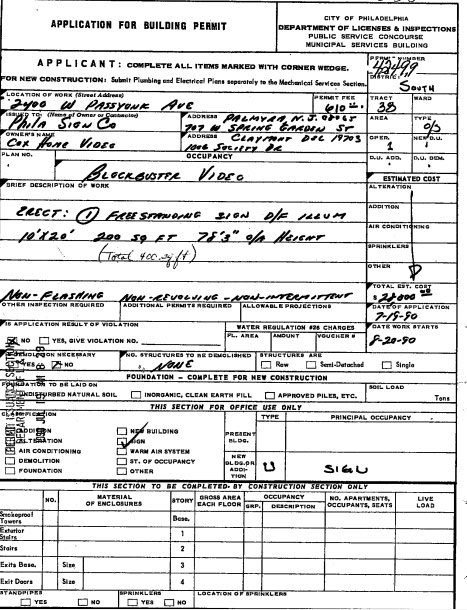 APPLICATION FOR BUILDING PERMIT
CITY OF PHILADELPHIA
DEPARTMENT OF LICENSES & INSPECTIONS
PUBLIC SERVICE CONCOURSE
MUNICIPAL SERVICES BUILDING
APPLICANT: COMPLETE ALL ITEMS MARKED WITH CORNER WEDGE.
PERMIT NUMBER
FOR NEW CONSTRUCTION: Submit Plumbing and Electrical Plans separately to the Mechanical Services Section.
DISTRICT
SOUTH
LOCATION OF WORK (Street Address)
PERMIT FEE
TRACT
WARD
2400 W PASSYUNK AVE
610
38
ISSUED TO: (Name of Owner or Contractor)
ADDRESS
PALMYRA, N.J. 08065
AREA
TYPE
Phila SIGN CO
707 W SPRING GARDEN ST
O/S
OWNER'S NAME
ADDRESS
CLAYMONT DEL 19703
OPER.
NEW D.U.
COX HOME VIDEO
1006 SOCIETY DR
1
PLAN NO.
OCCUPANCY
D.U. ADD.
D.U. DEM.
BLOCKBUSTER VIDEO
ESTIMATED COST
BRIEF DESCRIPTION OF WORK
ALTERATION
ERECT: (1) FREESTANDING SIGN D/F ILLUM
ADDITION
10'X20' 200 SQ FT 78'3" O/A HEIGHT
AIR CONDITIONING
(Total 400 sq ft)
SPRINKLERS
OTHER
TOTAL EST. COST
NON-FLASHING NON-REVOLVING - NON-INTERMITTENT
$28000.00
OTHER INSPECTION REQUIRED
ADDITIONAL PERMITS REQUIRED
ALLOWABLE PROJECTIONS
DATE OF APPLICATION
7-19-90
IS APPLICATION RESULT OF VIOLATION
WATER REGULATION #28 CHARGES
DATE WORK STARTS
NO YES, GIVE VIOLATION NO.
FL. AREA
AMOUNT
VOUCHER #
8-20-90
DEMOLITION NECESSARY
NO. STRUCTURES TO BE DEMOLISHED
STRUCTURES ARE
YES NO
NONE
Row Semi-Detached Single
FOUNDATION - COMPLETE FOR NEW CONSTRUCTION
FOUNDATION TO BE LAID ON
SOIL LOAD
UNDISTURBED NATURAL SOIL INORGANIC, CLEAN EARTH FILL APPROVED PILES, ETC.
Tons
THIS SECTION FOR OFFICE USE ONLY
CLASSIFICATION
TYPE
PRINCIPAL OCCUPANCY
ADDITION NEW BUILDING
PRESENT BLDG.
ALTERATION SIGN
AIR CONDITIONING WARM AIR SYSTEM
NEW BLDG. OR ADDITION
U
SIGN
DEMOLITION ST. OF OCCUPANCY
FOUNDATION OTHER
THIS SECTION TO BE COMPLETED BY CONSTRUCTION SECTION ONLY
NO.
MATERIAL OF ENCLOSURES
STORY
GROSS AREA EACH FLOOR
OCCUPANCY
GRP.
DESCRIPTION
NO. APARTMENTS, OCCUPANTS, SEATS
LIVE LOAD
Smokeproof Towers
Base.
Exterior Stairs
1
Stairs
2
Exits Base.
Size
3
Exit Doors
Size
4
STANDPIPES
SPRINKLERS
LOCATION OF SPRINKLERS
YES NO
YES NO